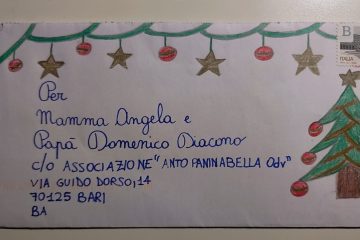 B
ITALIA
Per
Mamma Angela e
Papà Domenico Diacono
c/o ASSOCIAZIONE "ANTO PANINABELLA Odv"
VIA GUIDO DORSO, 14
70125 BARI
BA